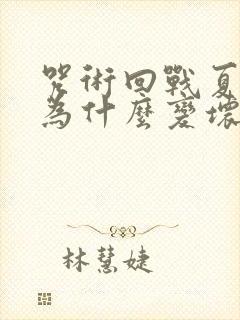 咒術回戰夏
為什麼變壞
林慧婕